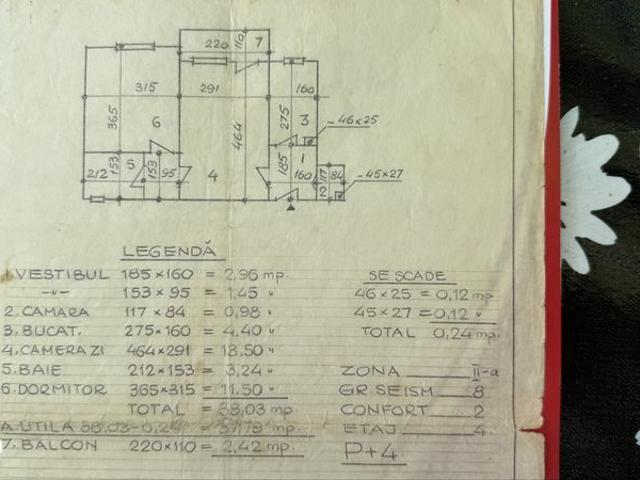 220 110 7
315 291 160
365 6 464 275 3 -46x25
212 153 5 153 95 4 185 1 160 117 84 -45x27
2
LEGENDĂ
1.VESTIBUL 185x160 = 2,96 mp.
-"- 153 x 95 = 1,45 "
2.CAMARA 117 x 84 = 0,98 "
3.BUCAT. 275x160 = 4,40 "
4.CAMERA ZI 464x291 = 13,50 "
5.BAIE 212x153 = 3,24 "
6.DORMITOR 365x315 = 11.50 "
TOTAL = 38,03 mp.
A.UTILĂ 38.03-0,24 = 37,79 mp.
7.BALCON 220x110 = 2,42 mp.
SE SCADE
46 x 25 = 0,12 mp
45 x 27 = 0,12 "
TOTAL 0,24 mp.
ZONA II-a
GR.SEISM 8
CONFORT 2
ETAJ 4
P+4